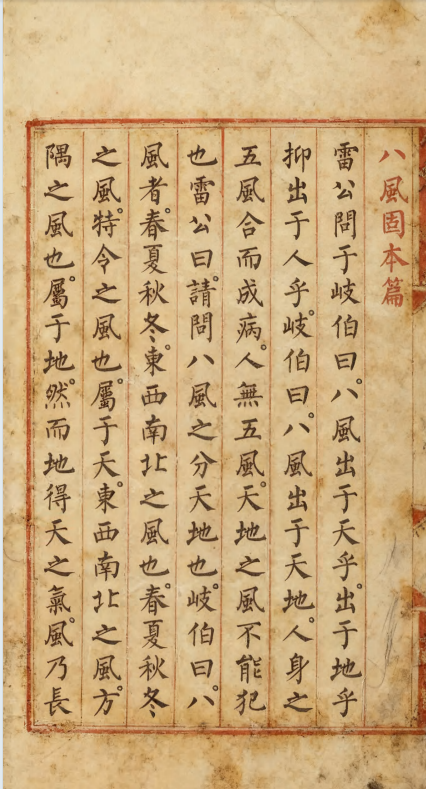 八風固本篇
雷公問于岐伯曰。八風出于天乎。出于地乎
抑出于人乎。岐伯曰。八風出于天地。人身之
五風合而成病。人無五風。天地之風不能犯
也。雷公曰。請問八風之分天地也。岐伯曰。八
風者。春夏秋冬。東西南北之風也。春夏秋冬
之風。特令之風也。屬于天。東西南北之風。方
隅之風也。屬于地。然而地得天之氣。風乃長